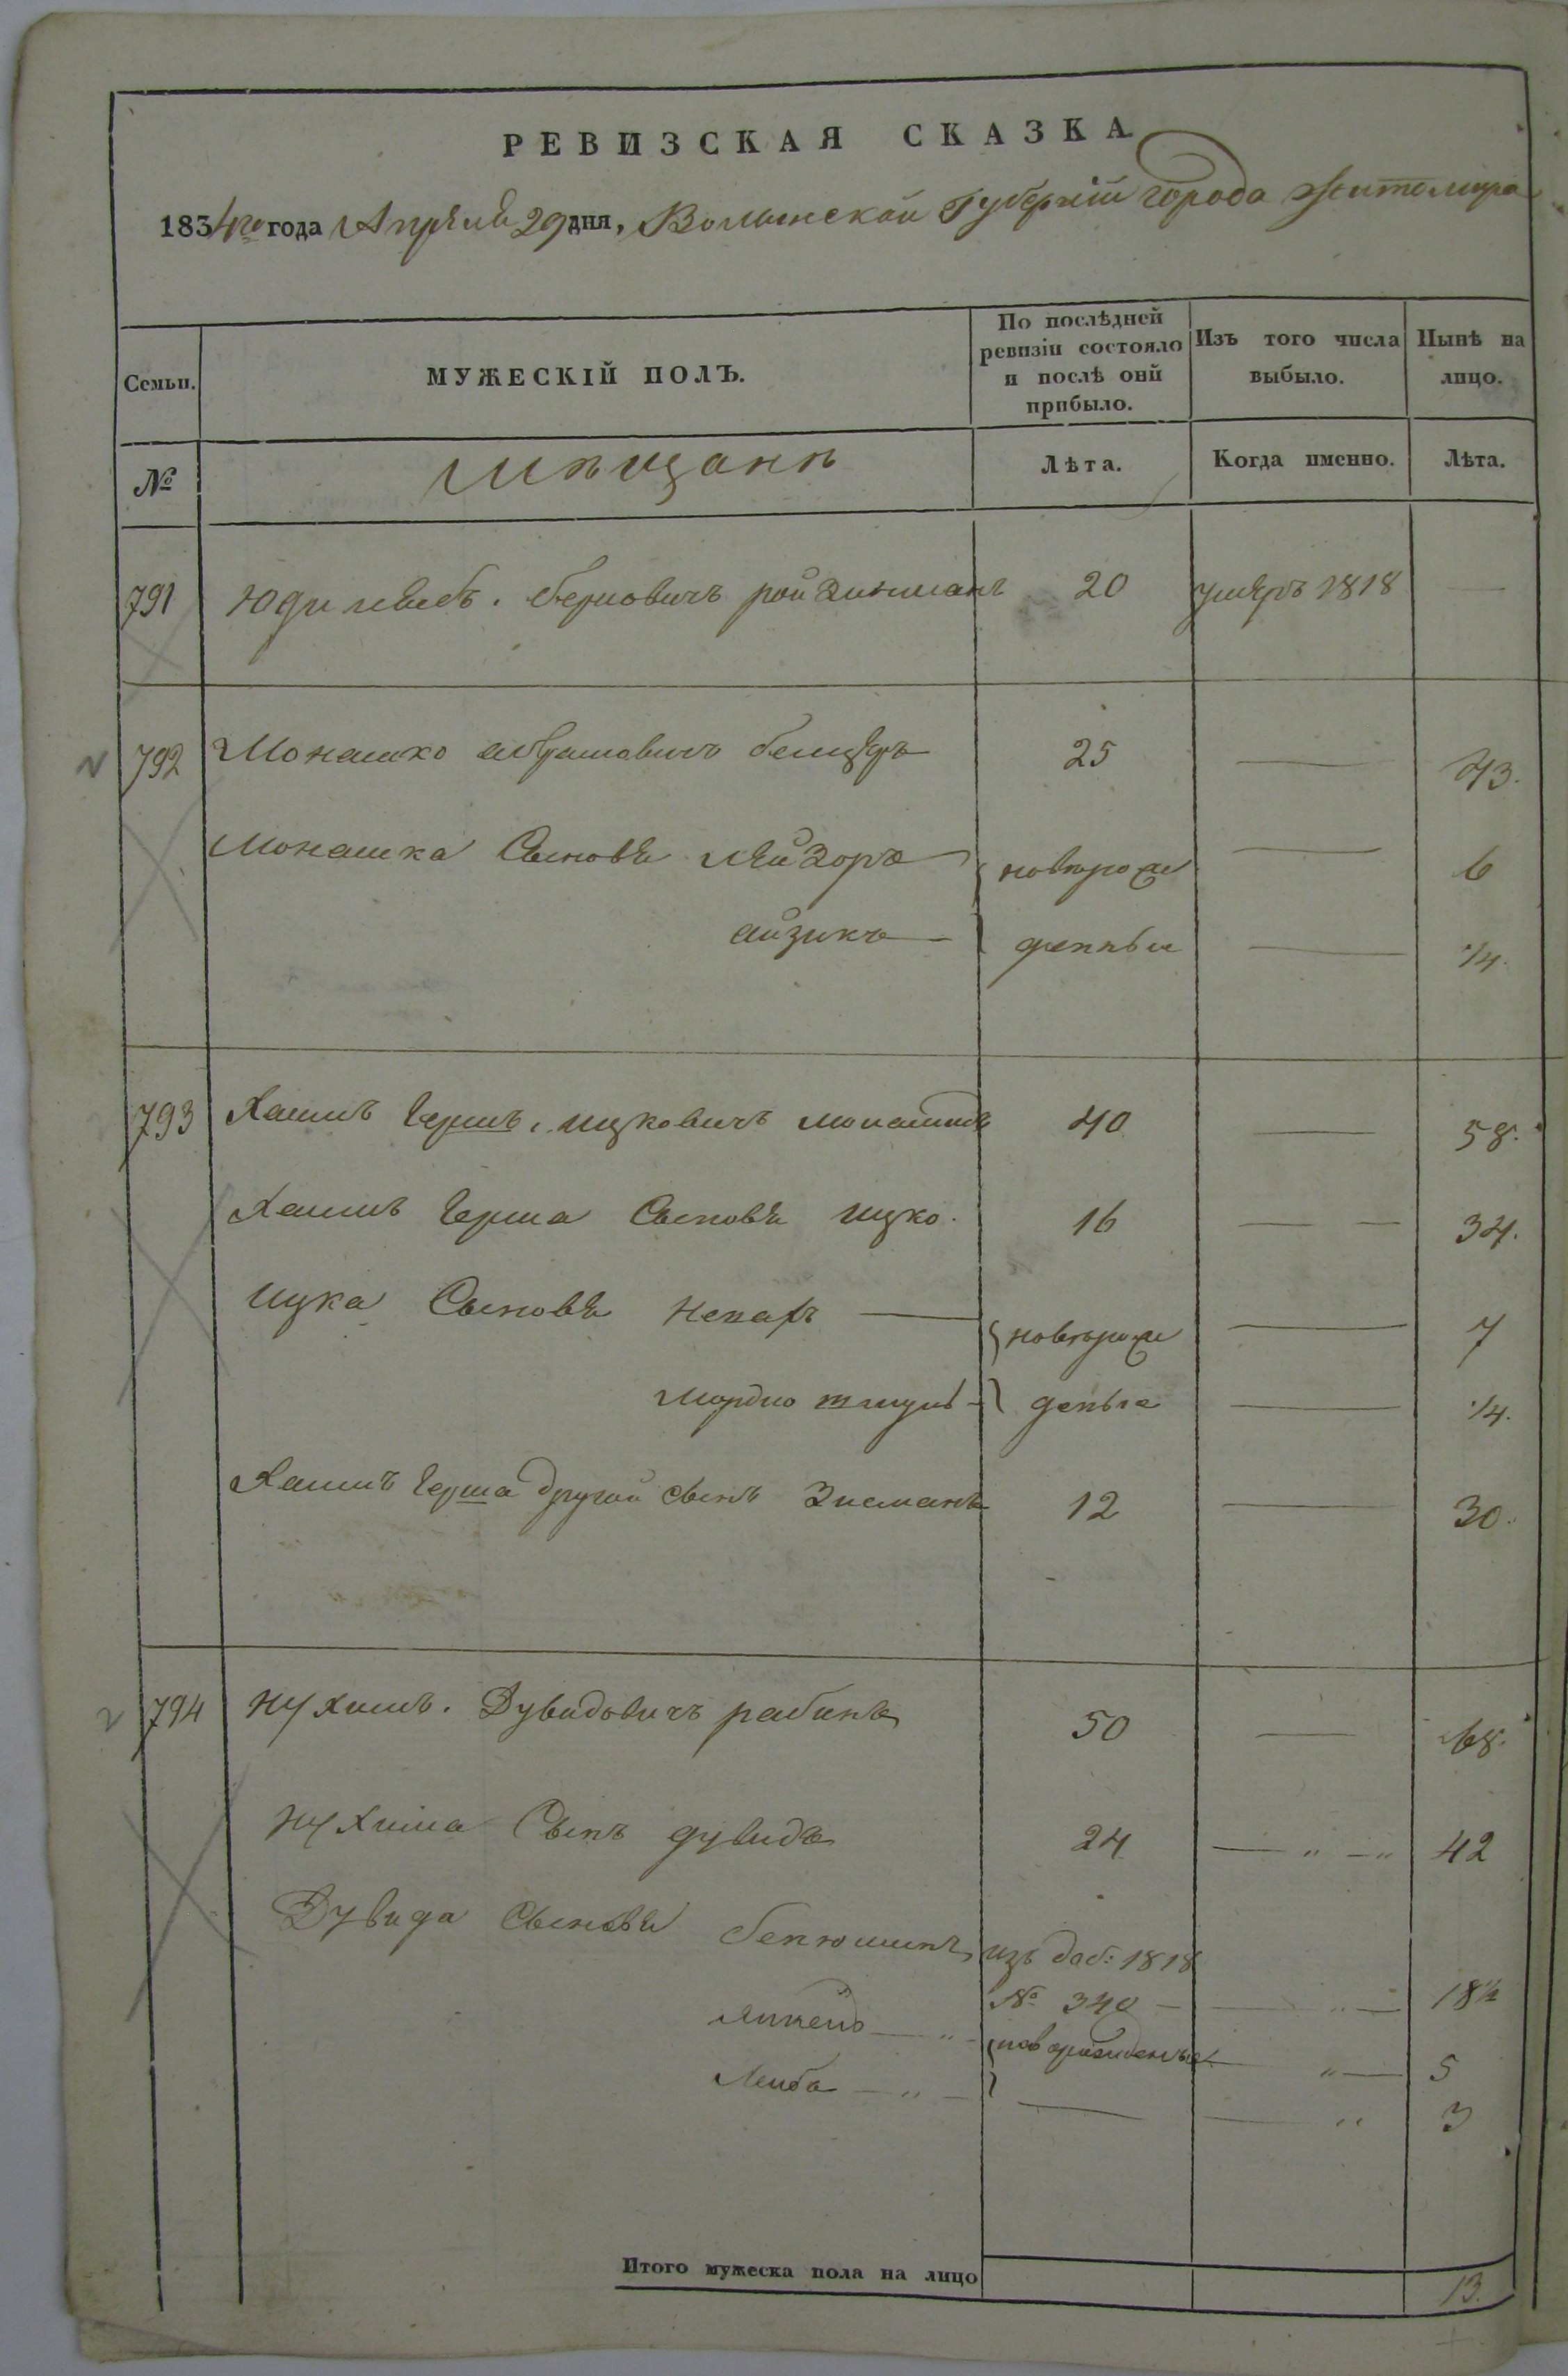 РЕВИЗСКАЯ СКАЗКА
1834го года Апреля 29 дня, Волынской Губернии города Житомира
Семьи.
МУЖЕСКІЙ ПОЛЪ.
По послѣдней ревизіи состояло и послѣ оной прибыло.
Изъ того числа выбыло.
Нынѣ на лицо.
№
Мѣщанѣ
Лѣта.
Когда именно.
Лѣта.
791 Юди лейбъ. берковичъ ройзинманъ 20 умеръ 1818 —
792 Монашко абрамовичъ белцеръ 25 — 43.
Монашка Сыновья лейзоръ } новорож — 6
айзикъ — } денные — 1/4.
793 Хаимъ гершъ. ицковичъ 40 — 58.
Хаимъ герша Сыновья ицко. 16 — — 34.
Ицка Сыновья — { новорож — 7
Мордко — } деные — 1/4.
Хаимъ герша другой сынъ Зисманъ 12 — 30.
794 Нухимъ. Дувидовичъ рабинъ 50 — 68.
Нухима Сынъ дувидъ 24 — " — " 42
Дувида Сыновья бенюминъ изъ доб: 1818
№ 340 — — " — 18 1/2
— " — { новорожденные — " — 5
Лейба — " — } — — " 3
Итого мужеска пола на лицо 13.